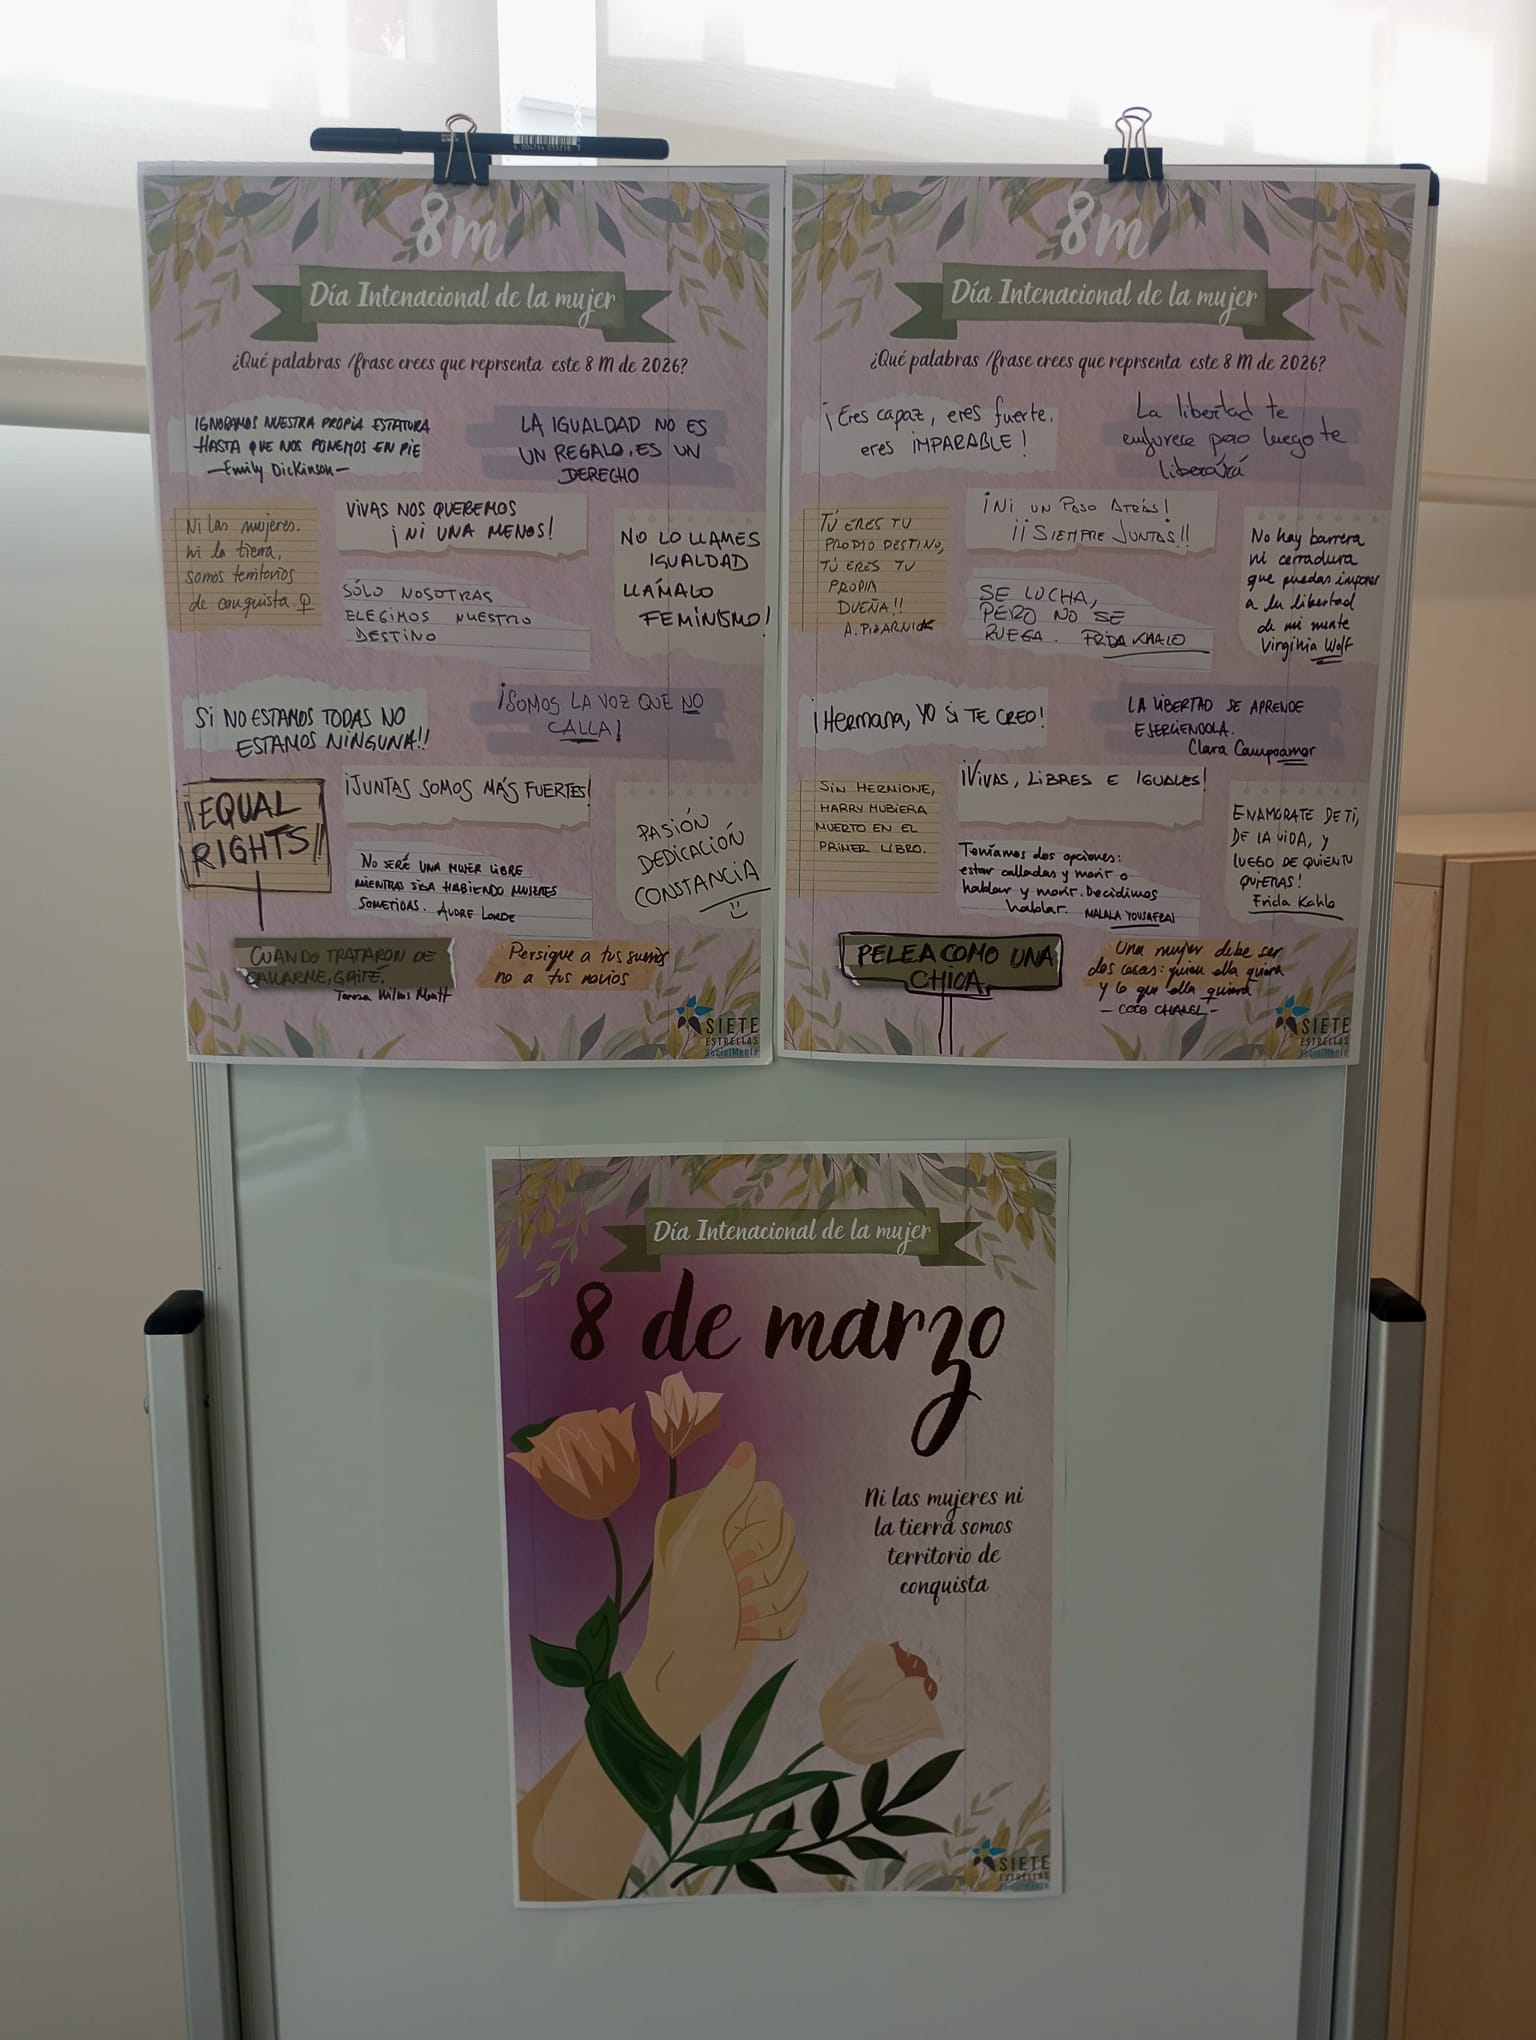 8m
Día Intenacional de la mujer
¿Qué palabras /frase crees que reprsenta este 8 M de 2026?
IGNORAMOS NUESTRA PROPIA ESTATURA
HASTA QUE NOS PONEMOS EN PIE
—Emily Dickinson—
LA IGUALDAD NO ES
UN REGALO, ES UN
DERECHO
Ni las mujeres.
ni la tierra,
somos territorios
de conquista ♀
VIVAS NOS QUEREMOS
¡NI UNA MENOS!
NO LO LLAMES
IGUALDAD
LLÁMALO
FEMINISMO!
SÓLO NOSOTRAS
ELEGIMOS NUESTRO
DESTINO
SI NO ESTAMOS TODAS NO
ESTAMOS NINGUNA!!
¡SOMOS LA VOZ QUE NO
CALLA!
¡¡EQUAL
RIGHTS!!
¡JUNTAS SOMOS MÁS FUERTES!
PASIÓN
DEDICACIÓN
CONSTANCIA
No SERÉ UNA MUJER LIBRE
MIENTRAS SIGA HABIENDO MUJERES
SOMETIDAS. AUDRE LORDE
CUANDO TRATARON DE
CALLARME, GRITÉ.
Teresa Wilms Montt
Persigue a tus sueños
no a tus novios
SIETE
ESTRELLAS
SocialMente
8m
Día Intenacional de la mujer
¿Qué palabras /frase crees que reprsenta este 8 M de 2026?
¡Eres capaz, eres fuerte,
eres IMPARABLE!
La libertad te
enfurece pero luego te
liberará
TÚ ERES TU
PROPIO DESTINO,
TÚ ERES TU
PROPIA
DUEÑA!!
A. PIZARNIK
¡NI UN PASO ATRÁS!
¡¡SIEMPRE JUNTAS!!
No hay barrera
ni cerradura
que puedas imponer
a la libertad
de mi mente
Virginia Wolf
SE LUCHA,
PERO NO SE
RUEGA. FRIDA KHALO
¡Hermana, YO SI TE CREO!
LA LIBERTAD SE APRENDE
EJERCIENDOLA.
Clara Campoamor
SIN HERMIONE,
HARRY HUBIERA
MUERTO EN EL
PRIMER LIBRO.
¡VIVAS, LIBRES E IGUALES!
ENAMÓRATE DE TI,
DE LA VIDA, Y
LUEGO DE QUIEN TU
QUIERAS!
Frida Kahlo
Teníamos dos opciones:
estar calladas y morir o
hablar y morir. Decidimos
hablar. MALALA YOUSAFZAI
PELEA COMO UNA
CHICA
Una mujer debe ser
dos cosas: quien ella quiera
y lo que ella quiera
— COCO CHANEL —
SIETE
ESTRELLAS
SocialMente
Día Intenacional de la mujer
8 de marzo
Ni las mujeres ni
la tierra somos
territorio de
conquista
SIETE
ESTRELLAS
SocialMente